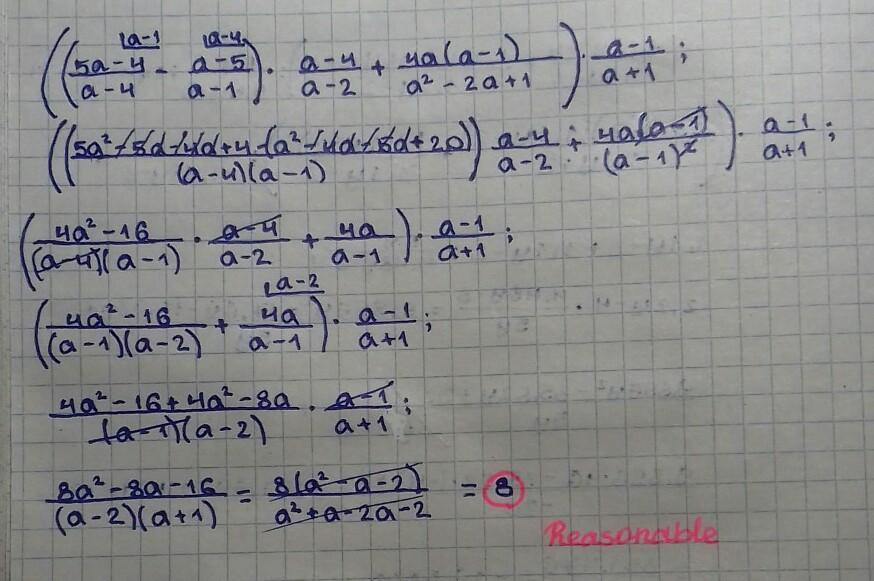 ((5a-4/a-4 |a-1 - a-5/a-1 |a-4) · a-4/a-2 + 4a(a-1)/a²-2a+1) · a-1/a+1;
((5a²-5a-4a+4-(a²-4a-5a+20))/(a-4)(a-1) · a-4/a-2 + 4a(a-1)/(a-1)²) · a-1/a+1;
(4a²-16/(a-4)(a-1) · a-4/a-2 + 4a/a-1) · a-1/a+1;
(4a²-16/(a-1)(a-2) + 4a/a-1 |a-2) · a-1/a+1;
4a²-16+4a²-8a/(a-1)(a-2) · a-1/a+1;
8a²-8a-16/(a-2)(a+1) = 8(a²-a-2)/a²+a-2a-2 = 8
Reasonable